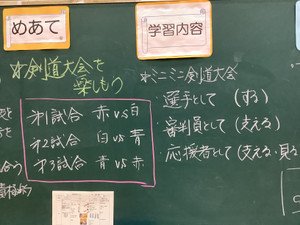 めあて
剣道大会を
楽しもう
第1試合 赤vs白
第2試合 白vs青
第3試合 青vs赤
学習内容
ミニミニ剣道大会
選手として (する)
審判員として (支える)
応援者として (支える・見る